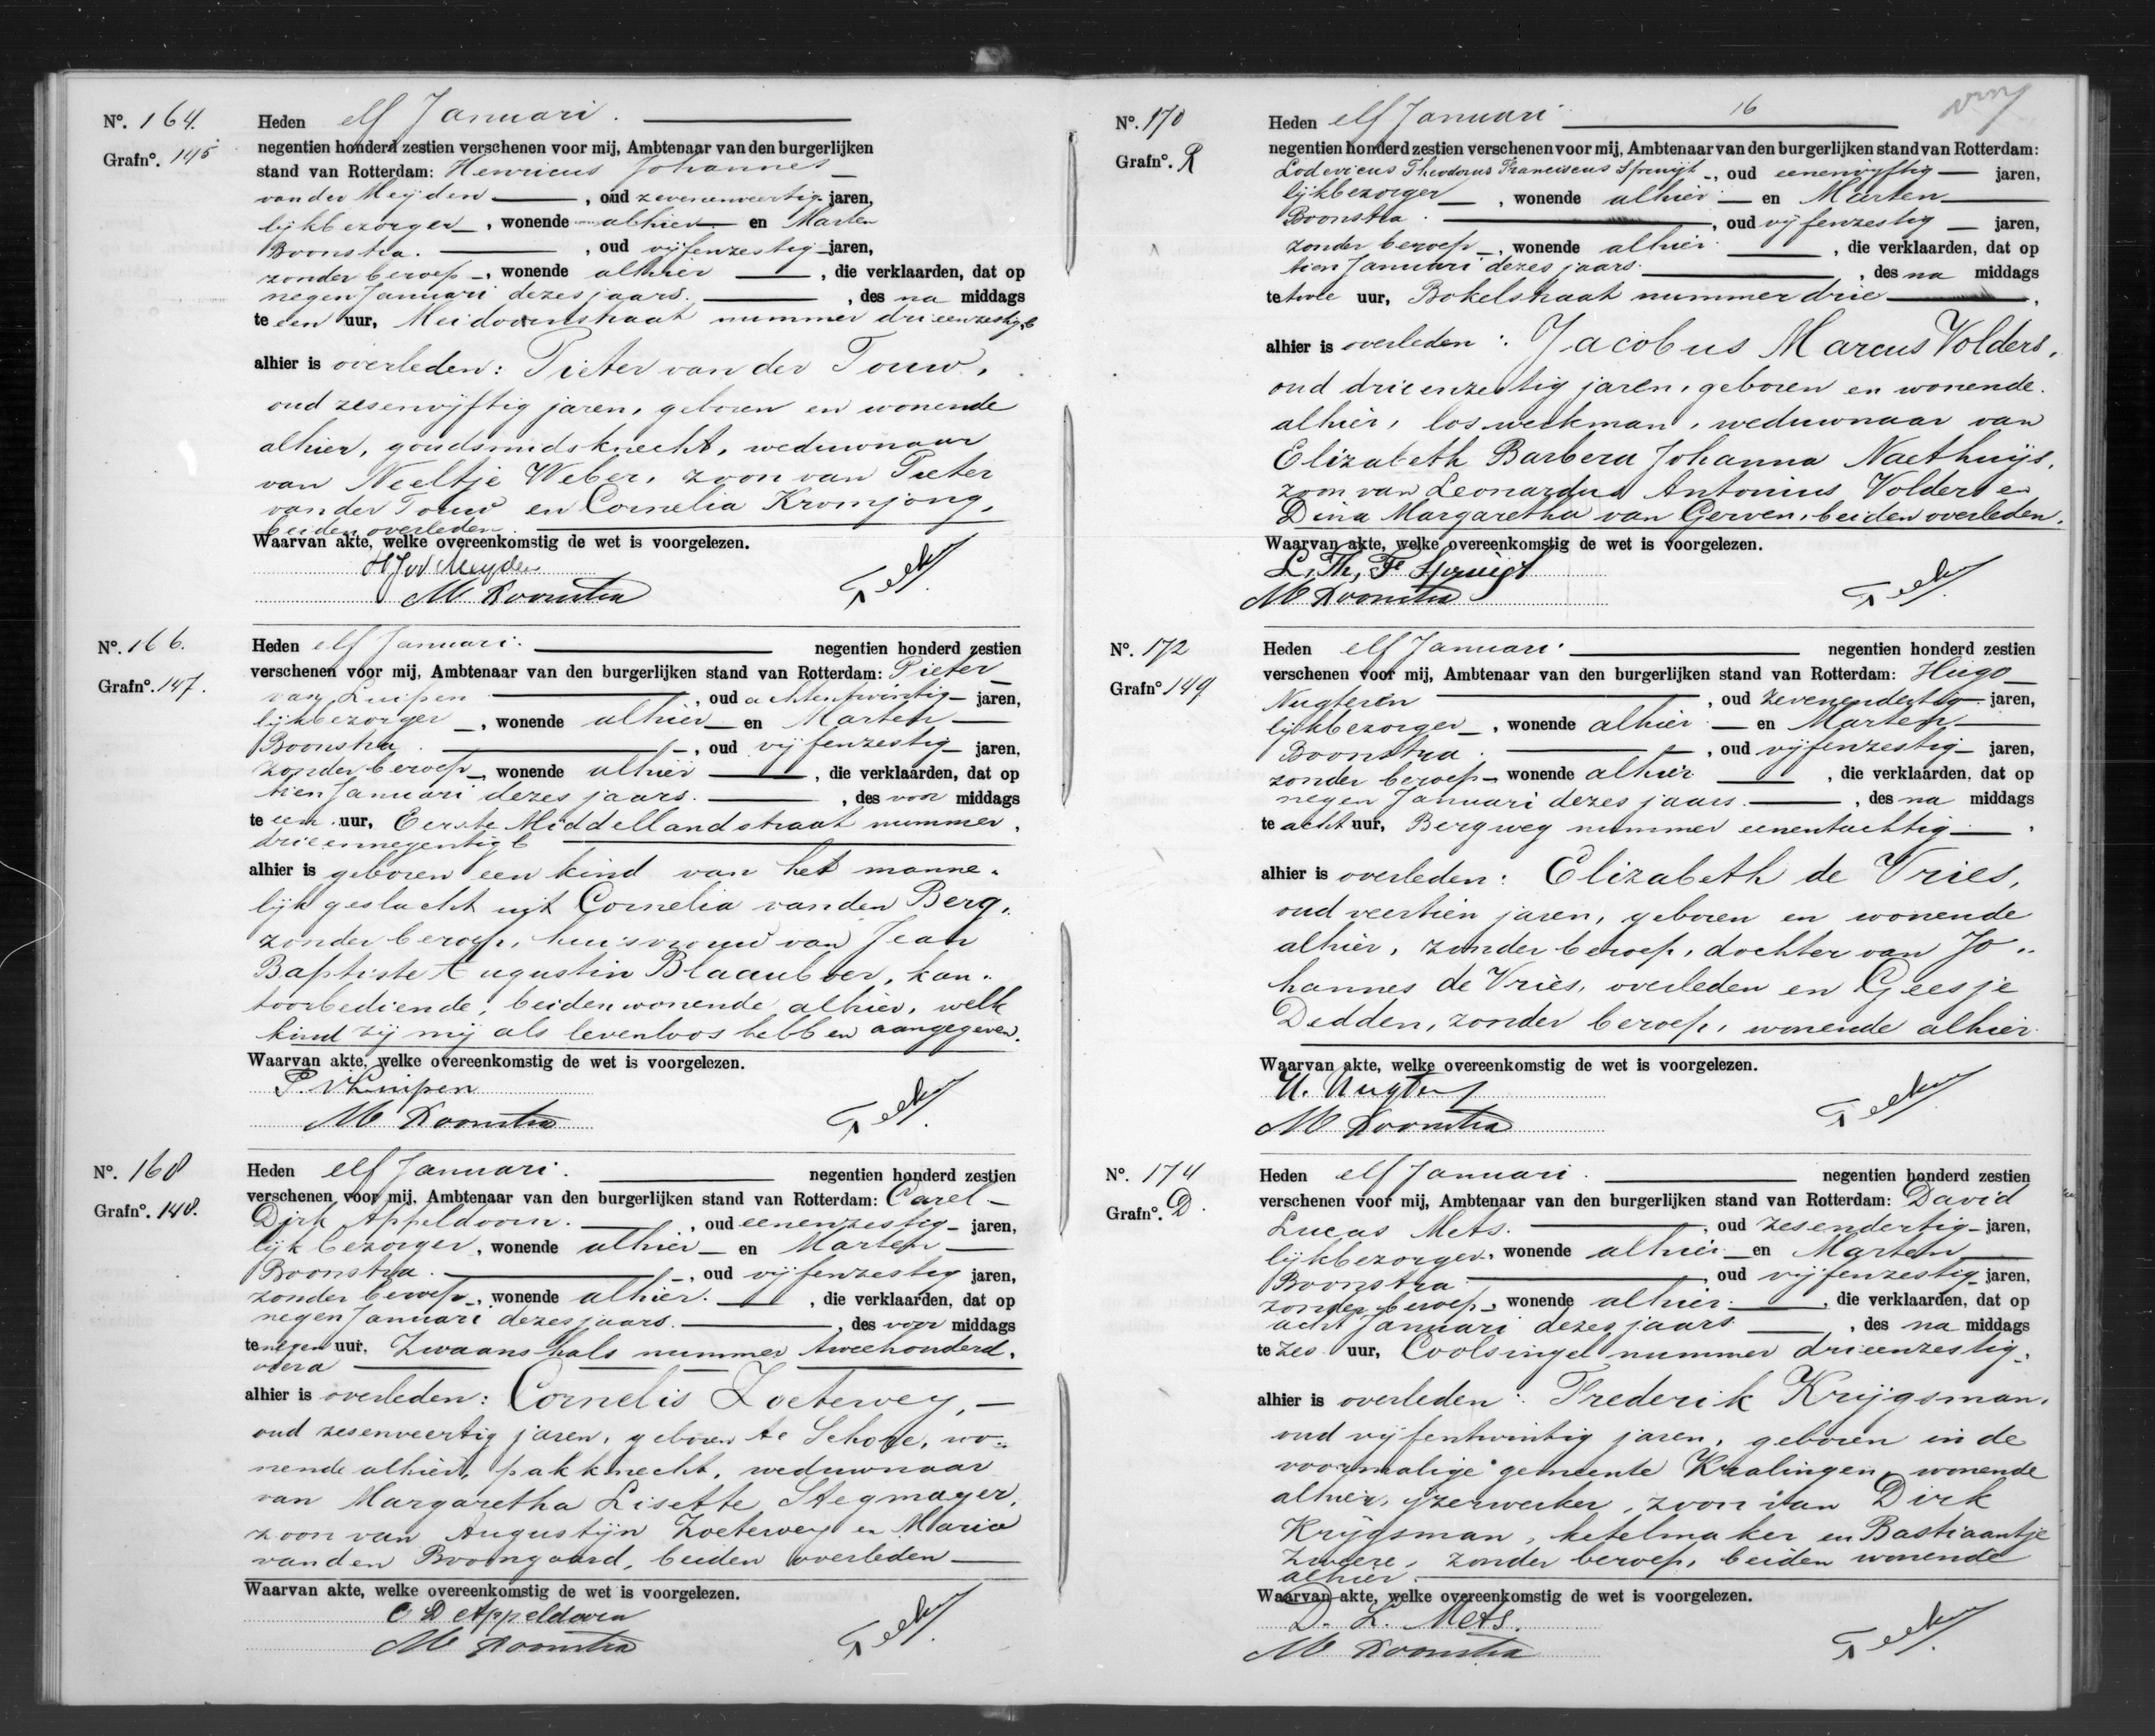 Nº. 164.
Grafnº. 145
Heden elf Januari.
negentien honderd zestien verschenen voor mij, Ambtenaar van den burgerlijken
stand van Rotterdam: Henricus Johannes
van der Meijden, oud zevenenveertig jaren,
lijkbezorger, wonende alhier en Marten
Boonstra., oud vijfenzestig jaren,
zonder beroep, wonende alhier, die verklaarden, dat op
negen Januari dezes jaars., des na middags
te een uur, Meidoornstraat nummer drieenzestig b
alhier is overleden: Pieter van der Touw,
oud zesenvijftig jaren, geboren en wonende
alhier, goudsmidsknecht, weduwnaar
van Neeltje Weber, zoon van Pieter
van der Touw en Cornelia Kromjong,
beiden overleden.
Waarvan akte, welke overeenkomstig de wet is voorgelezen.
HJvd Meyden
M Boonstra
Nº. 166.
Grafnº. 147.
Heden elf Januari. negentien honderd zestien
verschenen voor mij, Ambtenaar van den burgerlijken stand van Rotterdam: Pieter
van Luipen, oud achtentwintig jaren,
lijkbezorger, wonende alhier en Marten
Boonstra., oud vijfenzestig jaren,
zonder beroep, wonende alhier, die verklaarden, dat op
tien Januari dezes jaars., des voor middags
te een uur, Eerste Middellandstraat nummer
drieennegentig b
alhier is geboren een kind van het manne-
lijk geslacht uit Cornelia van den Berg,
zonder beroep, huisvrouw van Jean
Baptiste Augustin Blaauboer, kan-
toorbediende, beiden wonende alhier, welk
kind zij mij als levenloos hebben aangegeven.
Waarvan akte, welke overeenkomstig de wet is voorgelezen.
P. v Luipen
M Boonstra
Nº. 168
Grafnº. 148.
Heden elf Januari. negentien honderd zestien
verschenen voor mij, Ambtenaar van den burgerlijken stand van Rotterdam: Carel
Dirk Appeldoorn., oud eenenzestig jaren,
lijkbezorger, wonende alhier en Marten
Boonstra., oud vijfenzestig jaren,
zonder beroep, wonende alhier., die verklaarden, dat op
negen Januari dezes jaars., des voor middags
te negen uur, Zwaanshals nummer tweehonderd
alhier is overleden: Cornelis Zoeterwey,
oud zesenveertig jaren, geboren te Schore, wo-
nende alhier, pakknecht, weduwnaar
van Margaretha Lisette Stegmayer,
zoon van Augustijn Zoeterwey en Maria
van den Boomgaard, beiden overleden
Waarvan akte, welke overeenkomstig de wet is voorgelezen.
C D Appeldoorn
M Boonstra
16
Nº. 170
Grafnº. R
Heden elf Januari
negentien honderd zestien verschenen voor mij, Ambtenaar van den burgerlijken stand van Rotterdam:
Lodevicus Theodorus Franciscus Spruijt, oud eenenvijftig jaren,
lijkbezorger, wonende alhier en Marten
Boonstra., oud vijfenzestig jaren,
zonder beroep, wonende alhier., die verklaarden, dat op
tien Januari dezes jaars., des na middags
te twee uur, Bokelstraat nummer drie,
alhier is overleden: Jacobus Marcus Volders,
oud drieenzestig jaren, geboren en wonende
alhier, los werkman, weduwnaar van
Elizabeth Barbera Johanna Naethuijs,
zoon van Leonardus Antonius Volders en
Dina Margaretha van Gerven, beiden overleden.
Waarvan akte, welke overeenkomstig de wet is voorgelezen.
L. Th. F Spruijt
M Boonstra
Nº. 172
Grafnº 149
Heden elf Januari. negentien honderd zestien
verschenen voor mij, Ambtenaar van den burgerlijken stand van Rotterdam: Hugo
Nugteren, oud zevenendertig jaren,
lijkbezorger, wonende alhier en Marten
Boonstra., oud vijfenzestig jaren,
zonder beroep, wonende alhier, die verklaarden, dat op
negen Januari dezes jaars., des na middags
te acht uur, Bergweg nummer eenentachtig.
alhier is overleden: Elizabeth de Vries,
oud veertien jaren, geboren en wonende
alhier, zonder beroep, dochter van Jo-
hannes de Vries, overleden en Geesje
Dedden, zonder beroep, wonende alhier.
Waarvan akte, welke overeenkomstig de wet is voorgelezen.
H. Nugter
M Boonstra
Nº. 174
Grafnº. D.
Heden elf Januari. negentien honderd zestien
verschenen voor mij, Ambtenaar van den burgerlijken stand van Rotterdam: David
Lucas Mets., oud zesendertig jaren,
lijkbezorger, wonende alhier en Marten
Boonstra, oud vijfenzestig jaren,
zonder beroep, wonende alhier., die verklaarden, dat op
acht Januari dezes jaars., des na middags
te zes uur, Coolsingel nummer drieenzestig.
alhier is overleden: Frederik Krijgsman,
oud vijfentwintig jaren, geboren in de
voormalige gemeente Kralingen, wonende
alhier, ijzerwerker, zoon van Dirk
Krijgsman, ketelmaker en Bastiaantje
Zweere, zonder beroep, beiden wonende
alhier.
Waarvan akte, welke overeenkomstig de wet is voorgelezen.
D. L. Mets.
M Boonstra